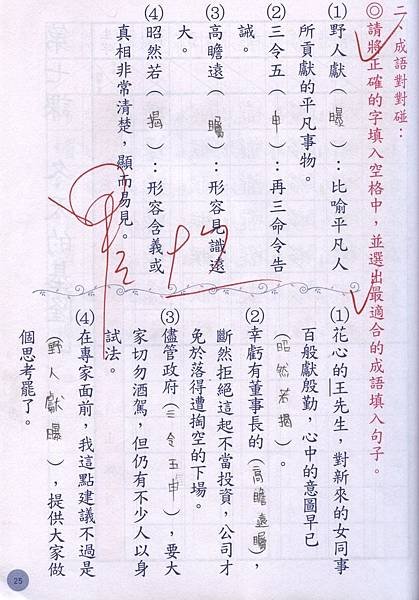 二、成語對對碰：
◎請將正確的字填入空格中，並選出最適合的成語填入句子。
(1)野人獻（曝）：比喻平凡人
所貢獻的平凡事物。
(2)三令五（申）：再三命令告
誡。
(3)高瞻遠（矚）：形容見識遠
大。
(4)昭然若（揭）：形容含義或
真相非常清楚，顯而易見。
(1)花心的王先生，對新來的女同事
百般獻殷勤，心中的意圖早已
（昭然若揭）。
(2)幸虧有董事長的（高瞻遠矚），
斷然拒絕這起不當投資，公司才
免於落得遭掏空的下場。
(3)儘管政府（三令五申），要大
家切勿酒駕，但仍有不少人以身
試法。
(4)在專家面前，我這點建議不過是
（野人獻曝），提供大家做
個思考罷了。
25